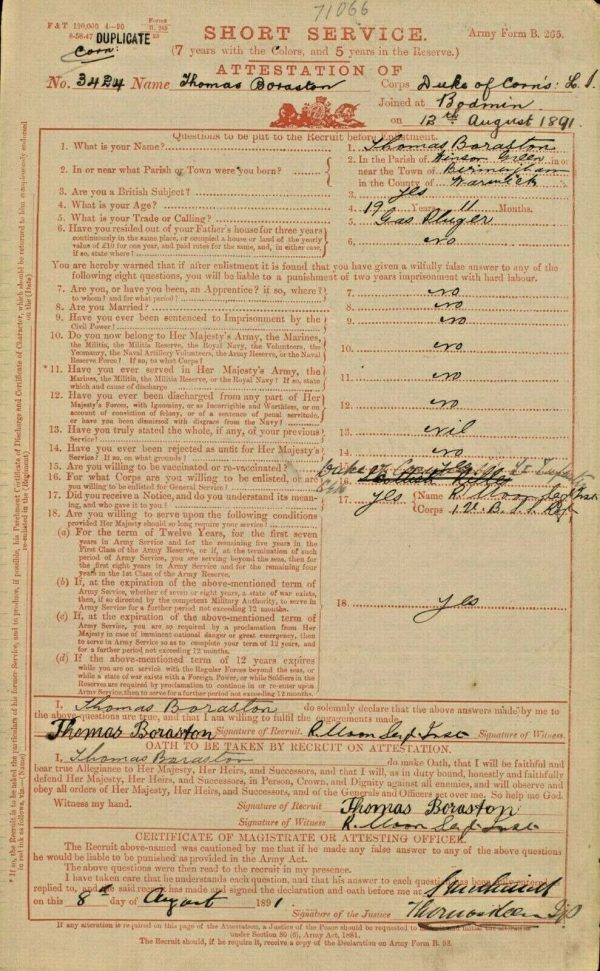 71066
F & T 120,000 4—90 Forms
8-58-47 DUPLICATE B. 265
SHORT SERVICE. Army Form B. 265.
(7 years with the Colors, and 5 years in the Reserve.)
ATTESTATION OF
No. 3424 Name Thomas Boraston Corps Duke of Corn's: L I.
Joined at Bodmin
on 12th August 1891.
Questions to be put to the Recruit before Enlistment.
1. What is your Name? 1. Thomas Boraston
2. In or near what Parish or Town were you born? 2. In the Parish of Winson Green in or
near the Town of Birmingham
in the County of Warwick
3. Are you a British Subject? 3. Yes
4. What is your Age? 4. 19 Years 11 Months.
5. What is your Trade or Calling? 5. Gas
6. Have you resided out of your Father's house for three years
continuously in the same place, or occupied a house or land of the yearly
value of £10 for one year, and paid rates for the same, and, in either case,
if so, state where? 6. no
You are hereby warned that if after enlistment it is found that you have given a wilfully false answer to any of the
following eight questions, you will be liable to a punishment of two years imprisonment with hard labour.
7. Are you, or have you been, an Apprentice? if so, where?
to whom? and for what period? 7. no
8. Are you Married? 8. no
9. Have you ever been sentenced to Imprisonment by the
Civil Power? 9. no
10. Do you now belong to Her Majesty's Army, the Marines,
the Militia, the Militia Reserve, the Royal Navy, the Volunteers, the
Yeomanry, the Naval Artillery Volunteers, the Army Reserve, or the Naval
Reserve Force? If so, to what Corps? 10. no
* 11. Have you ever served in Her Majesty's Army, the
Marines, the Militia, the Militia Reserve, or the Royal Navy? If so, state
which and cause of discharge 11. no
12. Have you ever been discharged from any part of Her
Majesty's Forces, with Ignominy, or as Incorrigible and Worthless, or on
account of conviction of felony, or of a sentence of penal servitude,
or have you been dismissed with disgrace from the Navy? 12. no
13. Have you truly stated the whole, if any, of your previous
Service? 13. nil
14. Have you ever been rejected as unfit for Her Majesty's
Service? If so, on what grounds? 14. no
15. Are you willing to be vaccinated or re-vaccinated? 15.
16. For what Corps are you willing to be enlisted, or are
you willing to be enlisted for General Service? 16.
17. Did you receive a Notice, and do you understand its mean-
ing, and who gave it to you? 17. Yes Name R. Moon
Corps
18. Are you willing to serve upon the following conditions
provided Her Majesty should so long require your service?
(a) For the term of Twelve Years, for the first seven
years in Army Service and for the remaining five years in the
First Class of the Army Reserve, or if, at the termination of such
period of Army Service, you are serving beyond the seas, then for
the first eight years in Army Service and for the remaining four
years in the 1st Class of the Army Reserve.
(b) If, at the expiration of the above-mentioned term of
Army Service, whether of seven or eight years, a state of war exists,
then, if so directed by the competent Military Authority, to serve in
Army Service for a further period not exceeding 12 months. 18. Yes
(c) If, at the expiration of the above-mentioned term of
Army Service, you are so required by a proclamation from Her
Majesty in case of imminent national danger or great emergency, then
to serve in Army Service so as to complete your term of 12 years, and
for a further period not exceeding 12 months.
(d) If the above-mentioned term of 12 years expires
while you are on service with the Regular Forces beyond the seas, or
while a state of war exists with a Foreign Power, or while Soldiers in the
Reserves are required by proclamation to continue in or re-enter upon
Army Service, then to serve for a further period not exceeding 12 months.
I, Thomas Boraston do solemnly declare that the above answers made by me to
the above questions are true, and that I am willing to fulfil the engagements made.
Thomas Boraston Signature of Recruit. R. Moon Signature of Witness.
OATH TO BE TAKEN BY RECRUIT ON ATTESTATION.
I, Thomas Boraston do make Oath, that I will be faithful and
bear true Allegiance to Her Majesty, Her Heirs, and Successors, and that I will, as in duty bound, honestly and faithfully
defend Her Majesty, Her Heirs, and Successors, in Person, Crown, and Dignity against all enemies, and will observe and
obey all orders of Her Majesty, Her Heirs, and Successors, and of the Generals and Officers set over me. So help me God.
Witness my hand. Signature of Recruit Thomas Boraston
Signature of Witness R. Moon
CERTIFICATE OF MAGISTRATE OR ATTESTING OFFICER.
The Recruit above-named was cautioned by me that if he made any false answer to any of the above questions
he would be liable to be punished as provided in the Army Act.
The above questions were then read to the recruit in my presence.
I have taken care that he understands each question, and that his answer to each question has been duly entered
replied to, and the said recruit has made and signed the declaration and oath before me at
on this 8th day of August 1891.
Signature of the Justice
If any alteration is required on this page of the Attestation, a Justice of the Peace should be requested to
under Section 80 (6), Army Act, 1881.
The Recruit should, if he require it, receive a copy of the Declaration on Army Form B. 93.